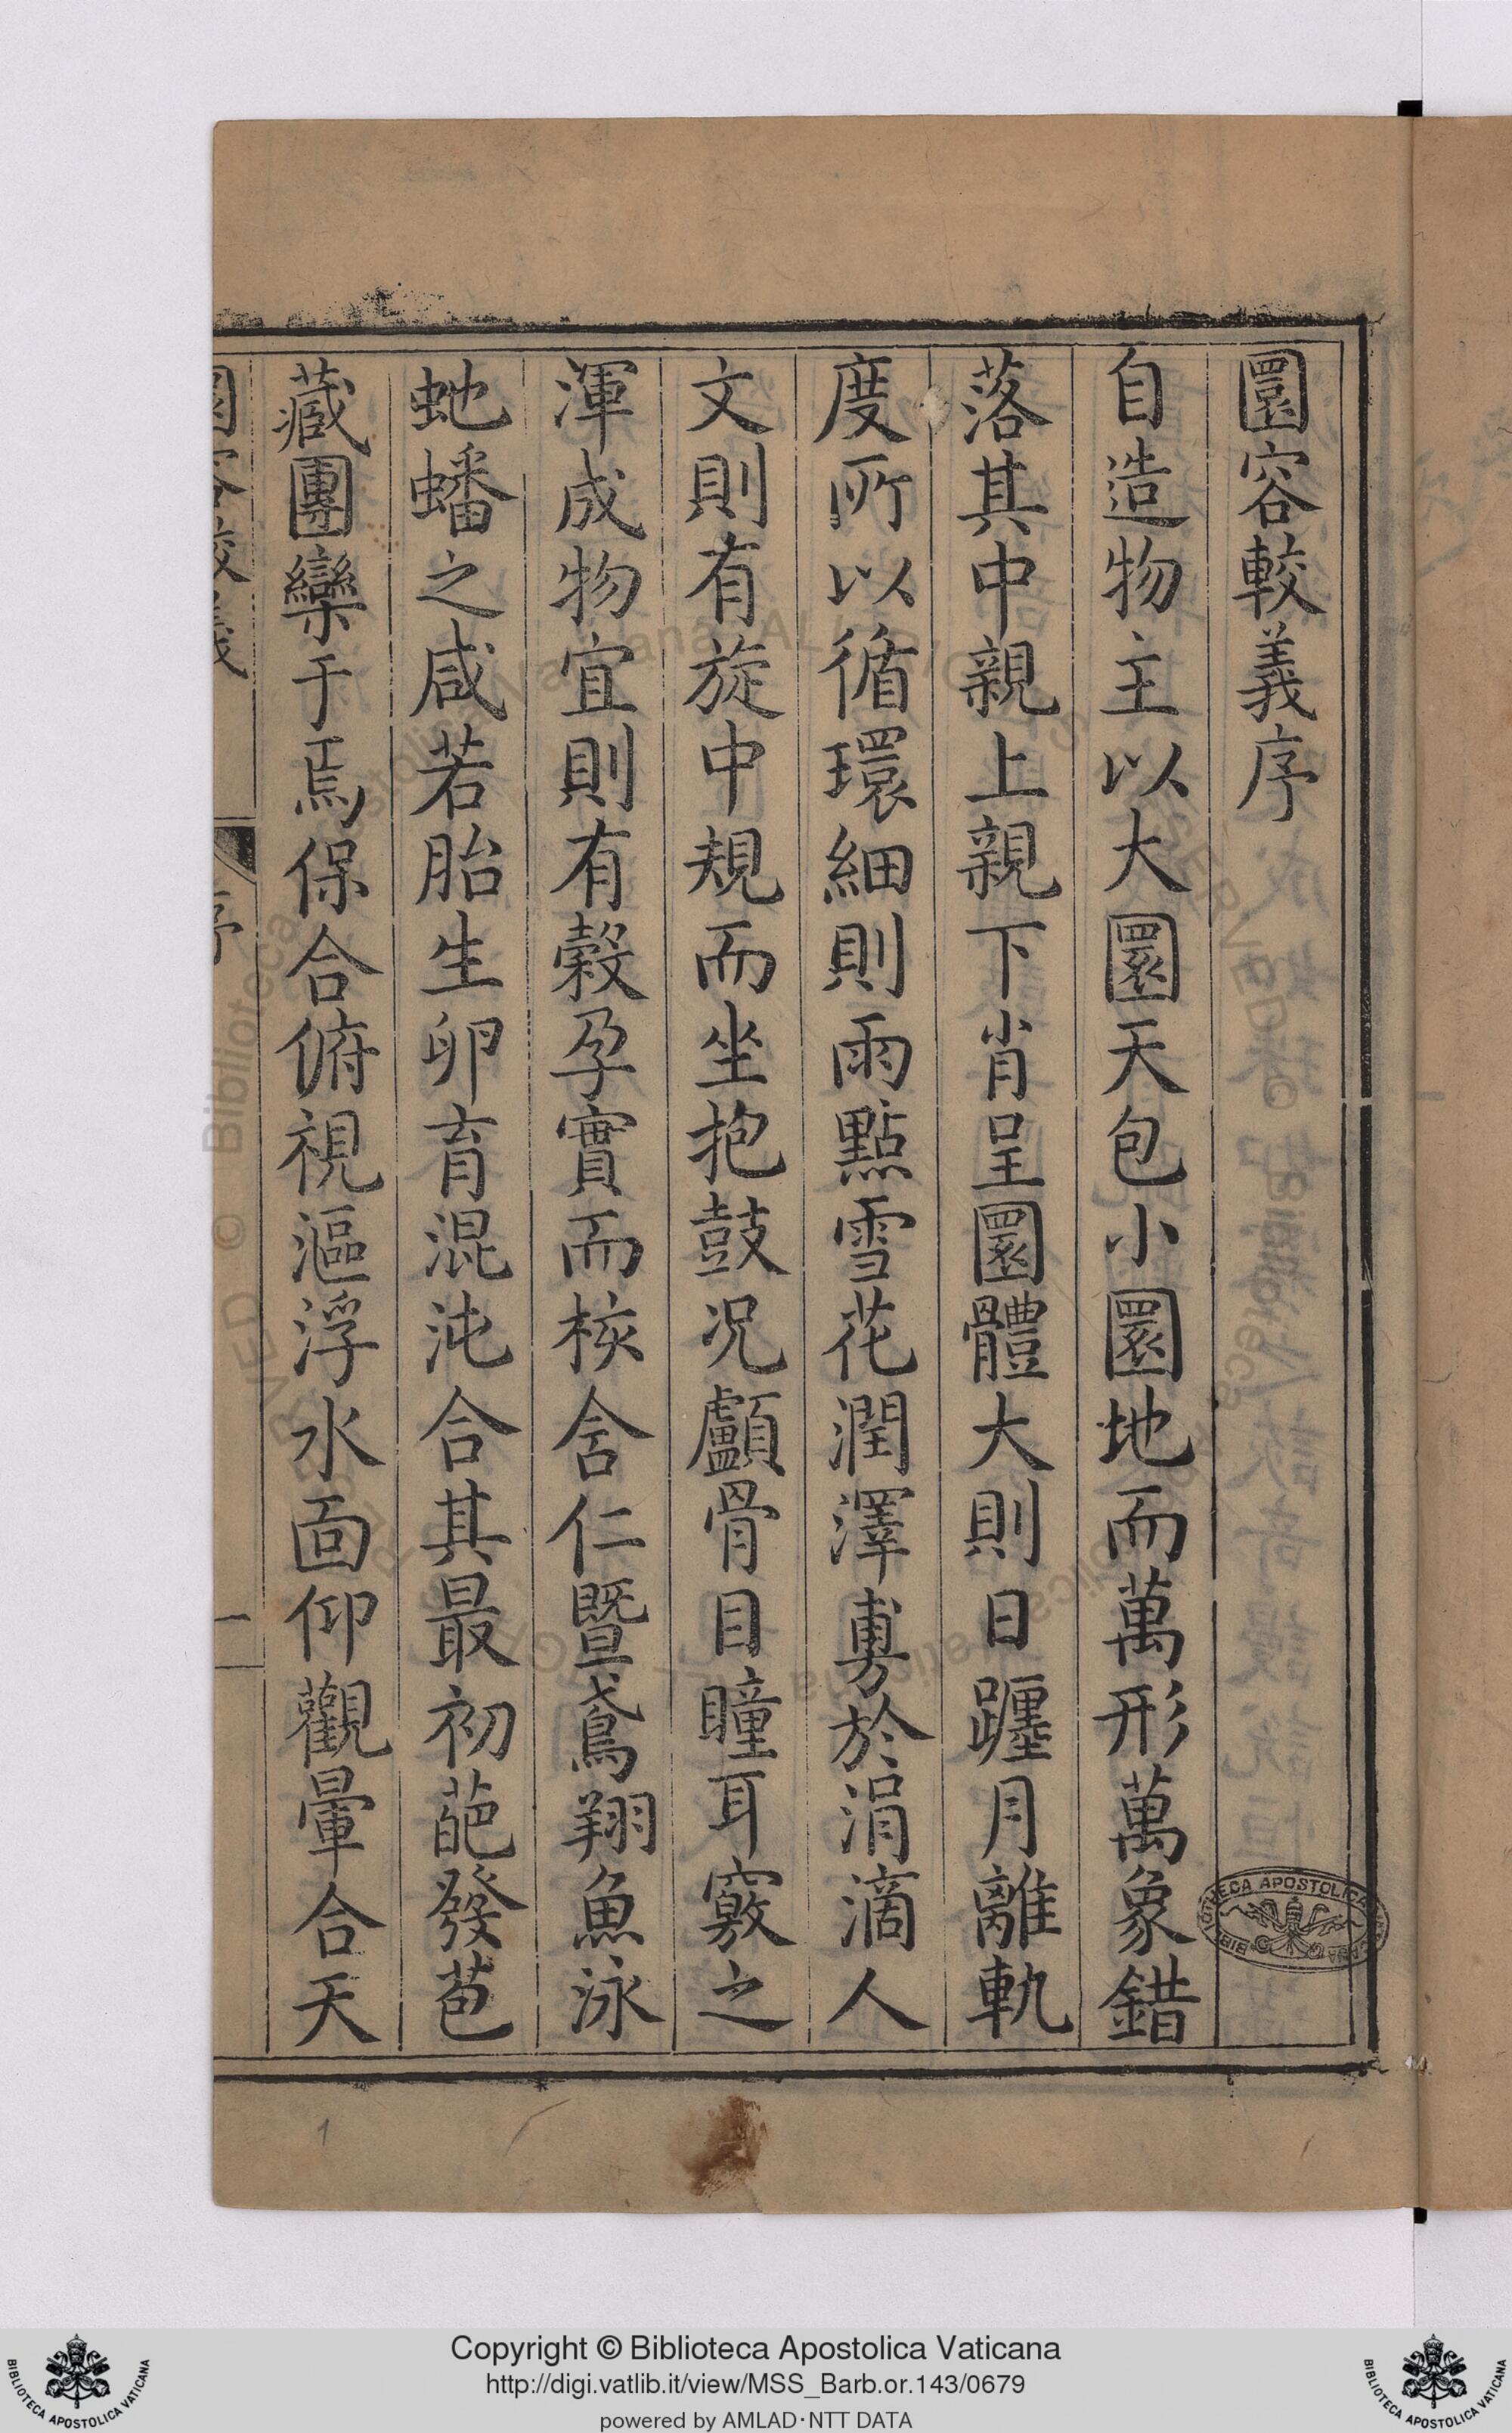 圜容較義序
自造物主以大圜天包小圜地而萬形萬象錯
落其中親上親下肖呈圜體大則日躔月離軌
度所以循環細則雨點雪花潤澤敷於涓滴人
文則有旋中規而坐抱鼓况顱骨目瞳耳竅之
渾成物宜則有穀孕實而核含仁暨鳶翔魚泳
虵蟠之咸若胎生卵育混沌合其最初葩發苞
藏團欒于焉保合俯視漚浮水面仰觀暈合天
圜容較義 序 一
1
BIBLIOTECA APOSTOLICA VATICANA
Copyright © Biblioteca Apostolica Vaticana
http://digi.vatlib.it/view/MSS_Barb.or.143/0679
powered by AMLAD·NTT DATA
BIBLIOTECA APOSTOLICA VATICANA